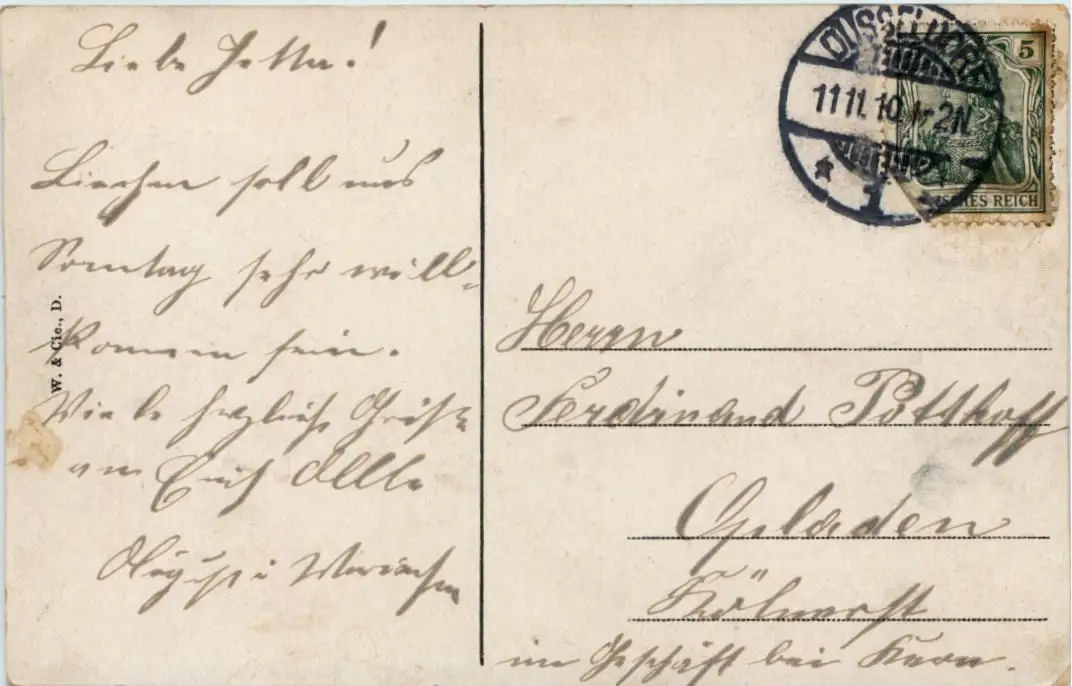 Liebe Jetta!
Lischen soll uns
Sonntag sehr will-
kommen sein.
Viele herzliche Grüße
an Euch Alle
August u
W. & Cie., D.
DÜSSELDORF
11.11.10. 2N
* 1
5
DEUTSCHES REICH
Herrn
Ferdinand Potthoff
Opladen
Kölnerst
im Geschäft bei